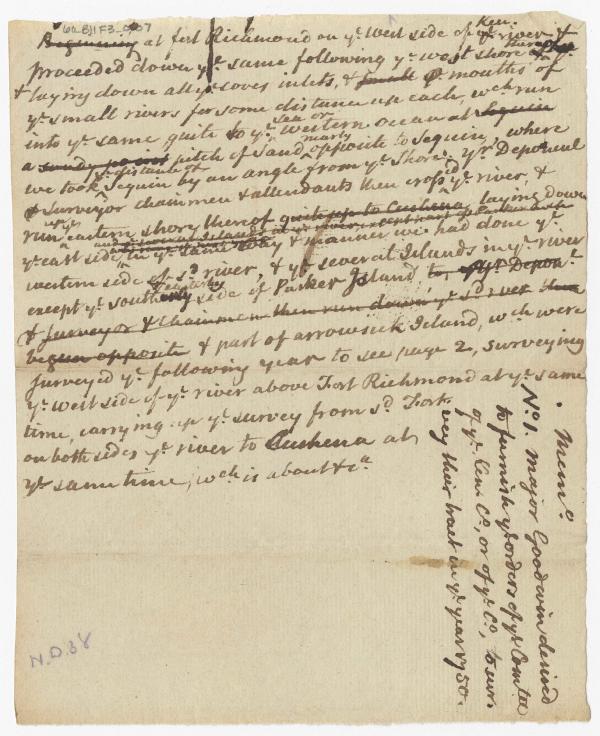 Beginning at fort Richmond on ye. West side of ye. Ken: river &
proceeded down ye. same following ye. west shore thereof
& laying down all ye. coves inlets, & small mouths of
ye. small rivers for some distance up each, wch. run
into ye. same quite to ye. sea or western ocean at Sequin
a sandy point pitch of sand, nearly opposite to Sequin, where
we took ye. distance of Sequin by an angle from ye. shore; yr. Deponent
& surveyor chainmen & attendants then cross'd ye. river, &
run ye. eastern shore thereof quite up to Cushena, laying down
ye. east side, in ye. same way & manner we had done ye.
western side of sd. river, & ye. several Islands in ye. river
except ye. southerly side of Parker Island, to yr. Depont.
& surveyor & chainmen then run down ye. sd river
begun opposite & part of arrowsick Island, wch. were
survey'd ye. following year to see page 2, surveying
ye. west side of ye. river above Fort Richmond at ye. same
time, carrying up ye. survey from sd. Fort
on both sides ye. river to Cushena at
ye. same time, wch. is about &ca
Memo.
No. 1. Major Goodwin desired
to furnish ye. orders of ye. Comtee
of ye. Ken. Co., or of ye. Co., to sur-
vey their tract in ye. year 1750.
N.D. 38